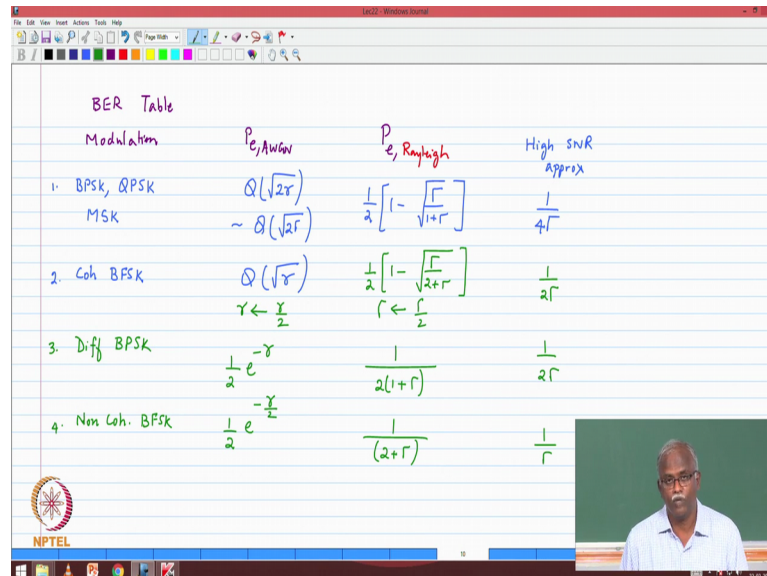 Lec22 - Windows Journal
File Edit View Insert Actions Tools Help
Page Width
B I
BER Table
Modulation Pe, AWGN Pe, Rayleigh High SNR approx
1. BPSK, QPSK Q(√2γ) 1/2 [1 - √(Γ/(1+Γ))] 1/4Γ
MSK ~ Q(√2Γ)
2. Coh BFSK Q(√γ) 1/2 [1 - √(Γ/(2+Γ))] 1/2Γ
γ ← γ/2 Γ ← Γ/2
3. Diff BPSK 1/2 e^-γ 1/2(1+Γ) 1/2Γ
4. Non Coh. BFSK 1/2 e^-γ/2 1/(2+Γ) 1/Γ
NPTEL
10